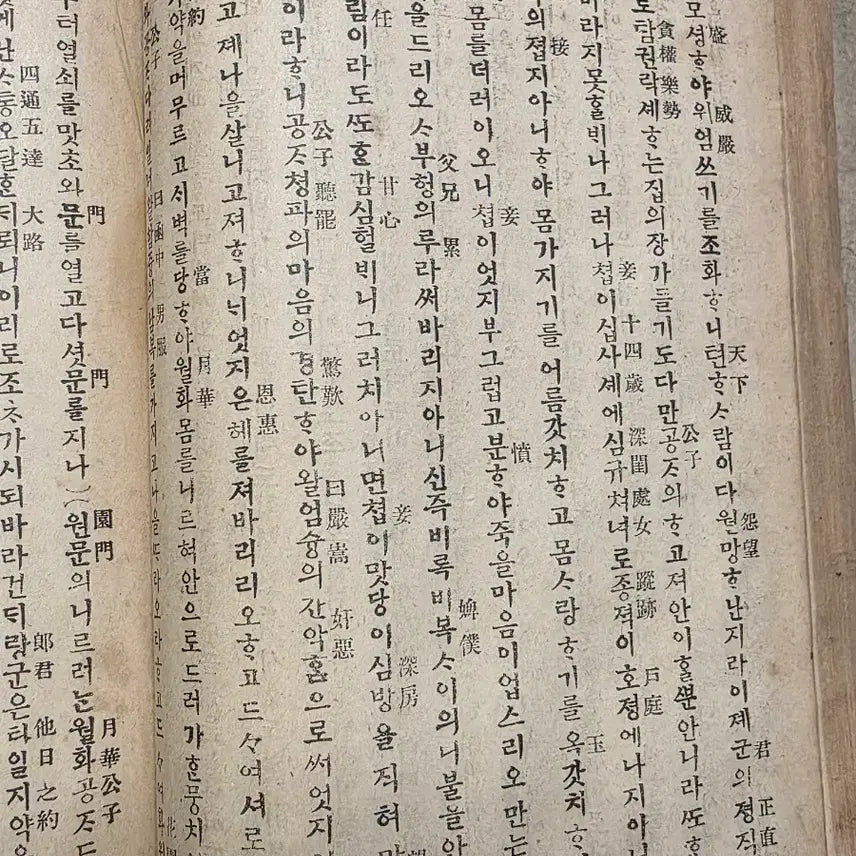 盛 威嚴 天下 怨望 君 正直
모셩ᄒᆞ야위엄쓰기를조화ᄒᆞ니텬ᄒᆞᄉᆞ람이다원망ᄒᆞ난지라이졔군의졍직
貪權樂勢 公子
로탐권락셰ᄒᆞ는집의장가들기도다만공ᄌᆞ의ᄒᆞ고져안이ᄒᆞᆯᄲᅮᆫ안니라ᄯᅩ
妾 十四歲 深閨處女 蹤跡 戶庭
바라지못ᄒᆞᆯᄇᆡ나그러나쳡이십사셰에심규쳐녀로종젹이호졍에나지아니
接 玉
의졉지아니ᄒᆞ야몸가지기를어름갓치ᄒᆞ고몸ᄉᆞ랑ᄒᆞ기를옥갓치ᄒᆞ
妾 憤
몸를더러이오니쳡이엇지부그럽고분ᄒᆞ야죽을마음이업스리오만는
父兄 累 婢僕
을드리오ᄉᆞ부형의루라써바리지아니신즉비록비복ᄉᆞ이의니불을안
任 甘心 妾 深房
림이라도ᄯᅩᄒᆞᆫ감심헐ᄇᆡ니그러치아니면쳡이맛당이심방을직혀
公子聽罷 驚歎 曰嚴嵩 奸惡
이라ᄒᆞ니공ᄌᆞ쳥파의마음의경탄ᄒᆞ야왈엄슝의간악홈으로써엇지
恩惠
고졔나을살니고져ᄒᆞ니ᄂᆡ엇지은혜를져바리리오ᄒᆞ고드ᄃᆡ여셔로
約 當 月華
약을머무르고ᄉᆡ벽를당ᄒᆞ야월화몸를니르혀안으로드러가ᄒᆞᆫ뭉치
公子 曰函中 男服
門 門 園門 月華公子
터열쇠를맛초와문를열고다셧문를지나원문의니르러ᄂᆞᆫ월화공ᄌᆞ
四通五達 大路 郎君 他日之約
에난ᄉᆞ통오달ᄒᆞᆫᄃᆡ되니이리로조ᄎᆞ가시되바라건ᄃᆡ랑군은타일지약